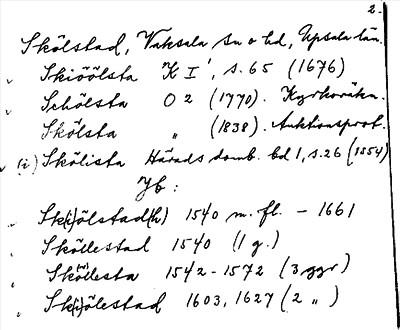 2.
Skölstad, Vaksala sn o hd, Upsala län.
Skiöölsta "K I", s. 65 (1676)
Schölsta O 2 (1770). Kyrkoräkn.
Skölsta " (1838). Auktionsprot.
(i) Skölista Härads domb. bd 1, s. 26 (1554)
Jb:
Sk(i)ölstad(h) 1540 m. fl. – 1661
Sköllestad 1540 (1 g.)
Sköllesta 1542 - 1572 (3 ggr)
Sk(i)ölestad 1603, 1627 (2 " )